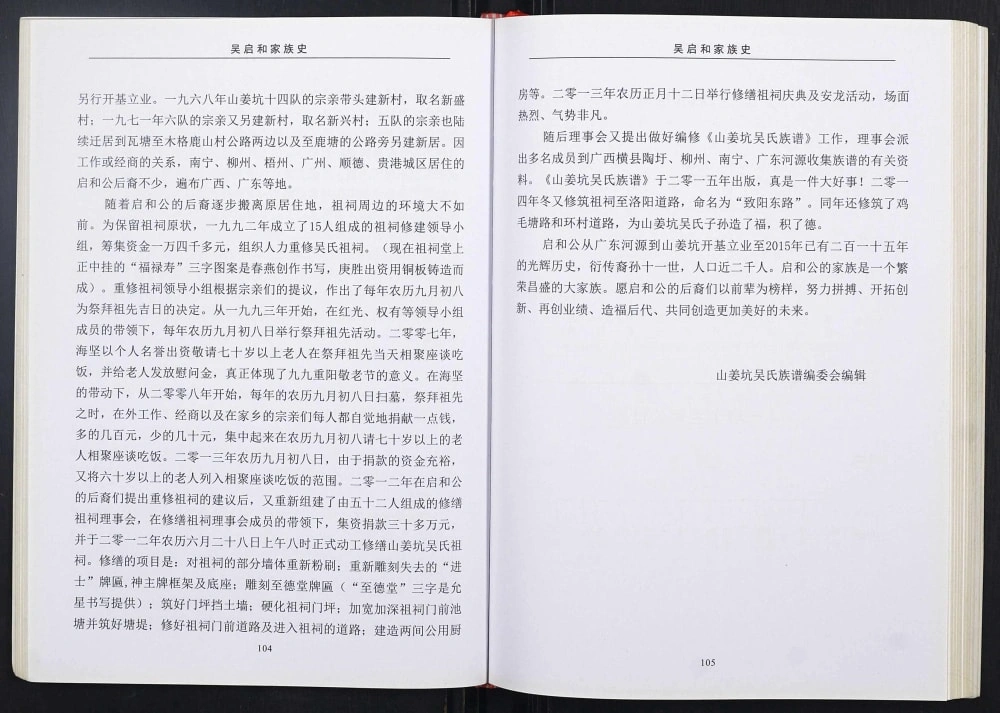 吴启和家族史
另行开基立业。一九六八年山姜坑十四队的宗亲带头建新村，取名新盛
村；一九七一年六队的宗亲又另建新村，取名新兴村；五队的宗亲也陆
续迁居到瓦塘至木格鹿山村公路两边以及至鹿塘的公路旁另建新居。因
工作或经商的关系，南宁、柳州、梧州、广州、顺德、贵港城区居住的
启和公后裔不少，遍布广西、广东等地。
随着启和公的后裔逐步搬离原居住地，祖祠周边的环境大不如
前。为保留祖祠原状，一九九二年成立了15人组成的祖祠修建领导小
组，筹集资金一万四千多元，组织人力重修吴氏祖祠。（现在祖祠堂上
正中挂的“福禄寿”三字图案是春燕创作书写，庚胜出资用铜板铸造而
成）。重修祖祠领导小组根据宗亲们的提议，作出了每年农历九月初八
为祭拜祖先吉日的决定。从一九九三年开始，在红光、权有等领导小组
成员的带领下，每年农历九月初八日举行祭拜祖先活动。二零零七年，
海坚以个人名誉出资敬请七十岁以上老人在祭拜祖先当天相聚座谈吃
饭，并给老人发放慰问金，真正体现了九九重阳敬老节的意义。在海坚
的带动下，从二零零八年开始，每年的农历九月初八日扫墓，祭拜祖先
之时，在外工作、经商以及在家乡的宗亲们每人都自觉地捐献一点钱，
多的几百元，少的几十元，集中起来在农历九月初八请七十岁以上的老
人相聚座谈吃饭。二零一三年农历九月初八日，由于捐款的资金充裕，
又将六十岁以上的老人列入相聚座谈吃饭的范围。二零一二年在启和公
的后裔们提出重修祖祠的建议后，又重新组建了由五十二人组成的修缮
祖祠理事会，在修缮祖祠理事会成员的带领下，集资捐款三十多万元，
并于二零一二年农历六月二十八日上午八时正式动工修缮山姜坑吴氏祖
祠。修缮的项目是：对祖祠的部分墙体重新粉刷；重新雕刻失去的“进
士”牌匾,神主牌框架及底座；雕刻至德堂牌匾（“至德堂”三字是允
星书写提供）；筑好门坪挡土墙；硬化祖祠门坪；加宽加深祖祠门前池
塘并筑好塘堤；修好祖祠门前道路及进入祖祠的道路；建造两间公用厨
104
吴启和家族史
房等。二零一三年农历正月十二日举行修缮祖祠庆典及安龙活动，场面
热烈、气势非凡。
随后理事会又提出做好编修《山姜坑吴氏族谱》工作，理事会派
出多名成员到广西横县陶圩、柳州、南宁、广东河源收集族谱的有关资
料。《山姜坑吴氏族谱》于二零一五年出版，真是一件大好事！二零一
四年冬又修筑祖祠至洛阳道路，命名为“致阳东路”。同年还修筑了鸡
毛塘路和环村道路，为山姜坑吴氏子孙造了福，积了德。
启和公从广东河源到山姜坑开基立业至2015年已有二百一十五年
的光辉历史，衍传裔孙十一世，人口近二千人。启和公的家族是一个繁
荣昌盛的大家族。愿启和公的后裔们以前辈为榜样，努力拼搏、开拓创
新、再创业绩、造福后代、共同创造更加美好的未来。
山姜坑吴氏族谱编委会编辑
105